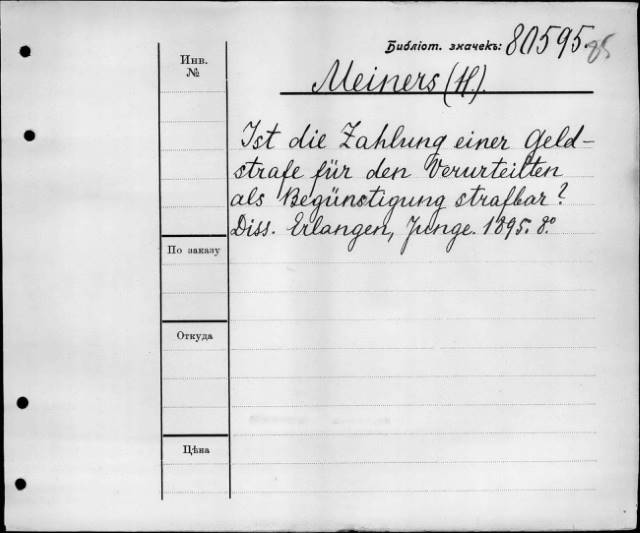 Библіот. значекъ: 80595 85
Инв.
№
Meiners (H.).
Ist die Zahlung einer Geld-
strafe für den Verurteilten
als Begünstigung strafbar?
Diss. Erlangen, Junge. 1895. 8.º
По заказу
Откуда
Цѣна